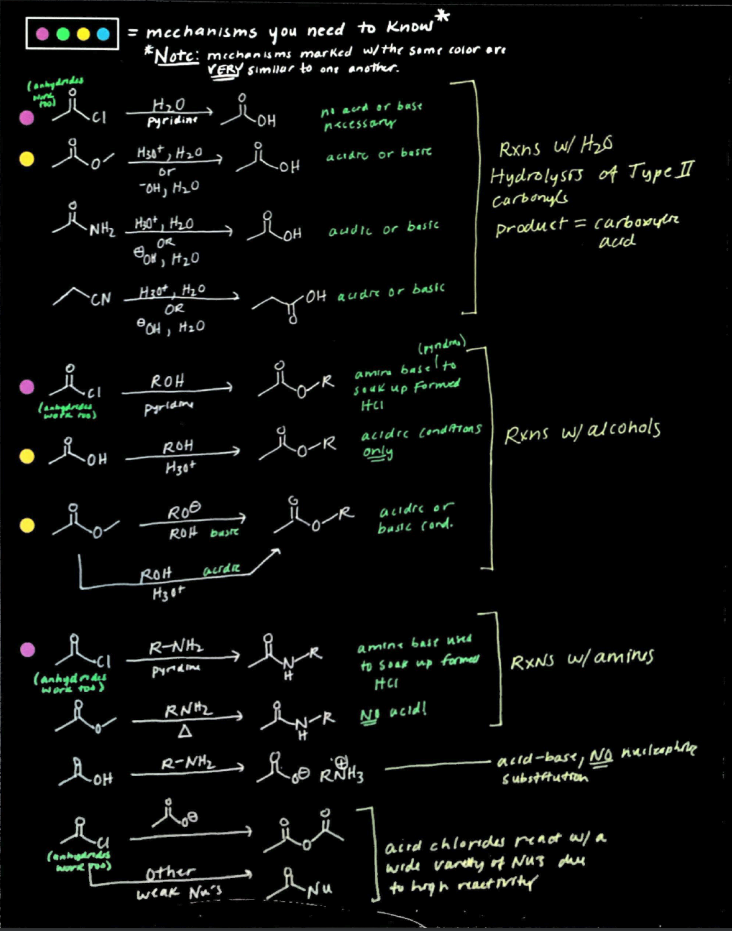 = mechanisms you need to know*
*Note: mechanisms marked w/the same color are
VERY similar to one another.
(anhydrides
work
too)
Cl
H2O
pyridine
OH
no acid or base
necessary
O
H3O+, H2O
or
-OH, H2O
OH
acidic or basic
NH2
H3O+, H2O
OR
⊖OH, H2O
OH
acidic or basic
CN
H3O+, H2O
OR
⊖OH, H2O
OH
acidic or basic
Rxns w/ H2O
Hydrolysis of Type II
carbonyls
product = carboxylic
acid
Cl
(anhydrides
work too)
ROH
pyridine
O-R
(pyridine)
amine base to
soak up formed
HCl
OH
ROH
H3O+
O-R
acidic conditions
only
O
RO⊖
ROH basic
O-R
acidic or
basic cond.
ROH acidic
H3O+
Rxns w/alcohols
Cl
(anhydrides
work too)
R-NH2
pyridine
N-R
H
amine base used
to soak up formed
HCl
O
RNH2
Δ
N-R
H
NO acid!
RxNs w/amines
OH
R-NH2
O⊖ R⊕NH3
acid-base, NO nucleophilic
substitution
Cl
(anhydrides
work too)
O⊖
O
Other
weak Nu's
Nu
acid chlorides react w/a
wide variety of Nu's due
to high reactivity